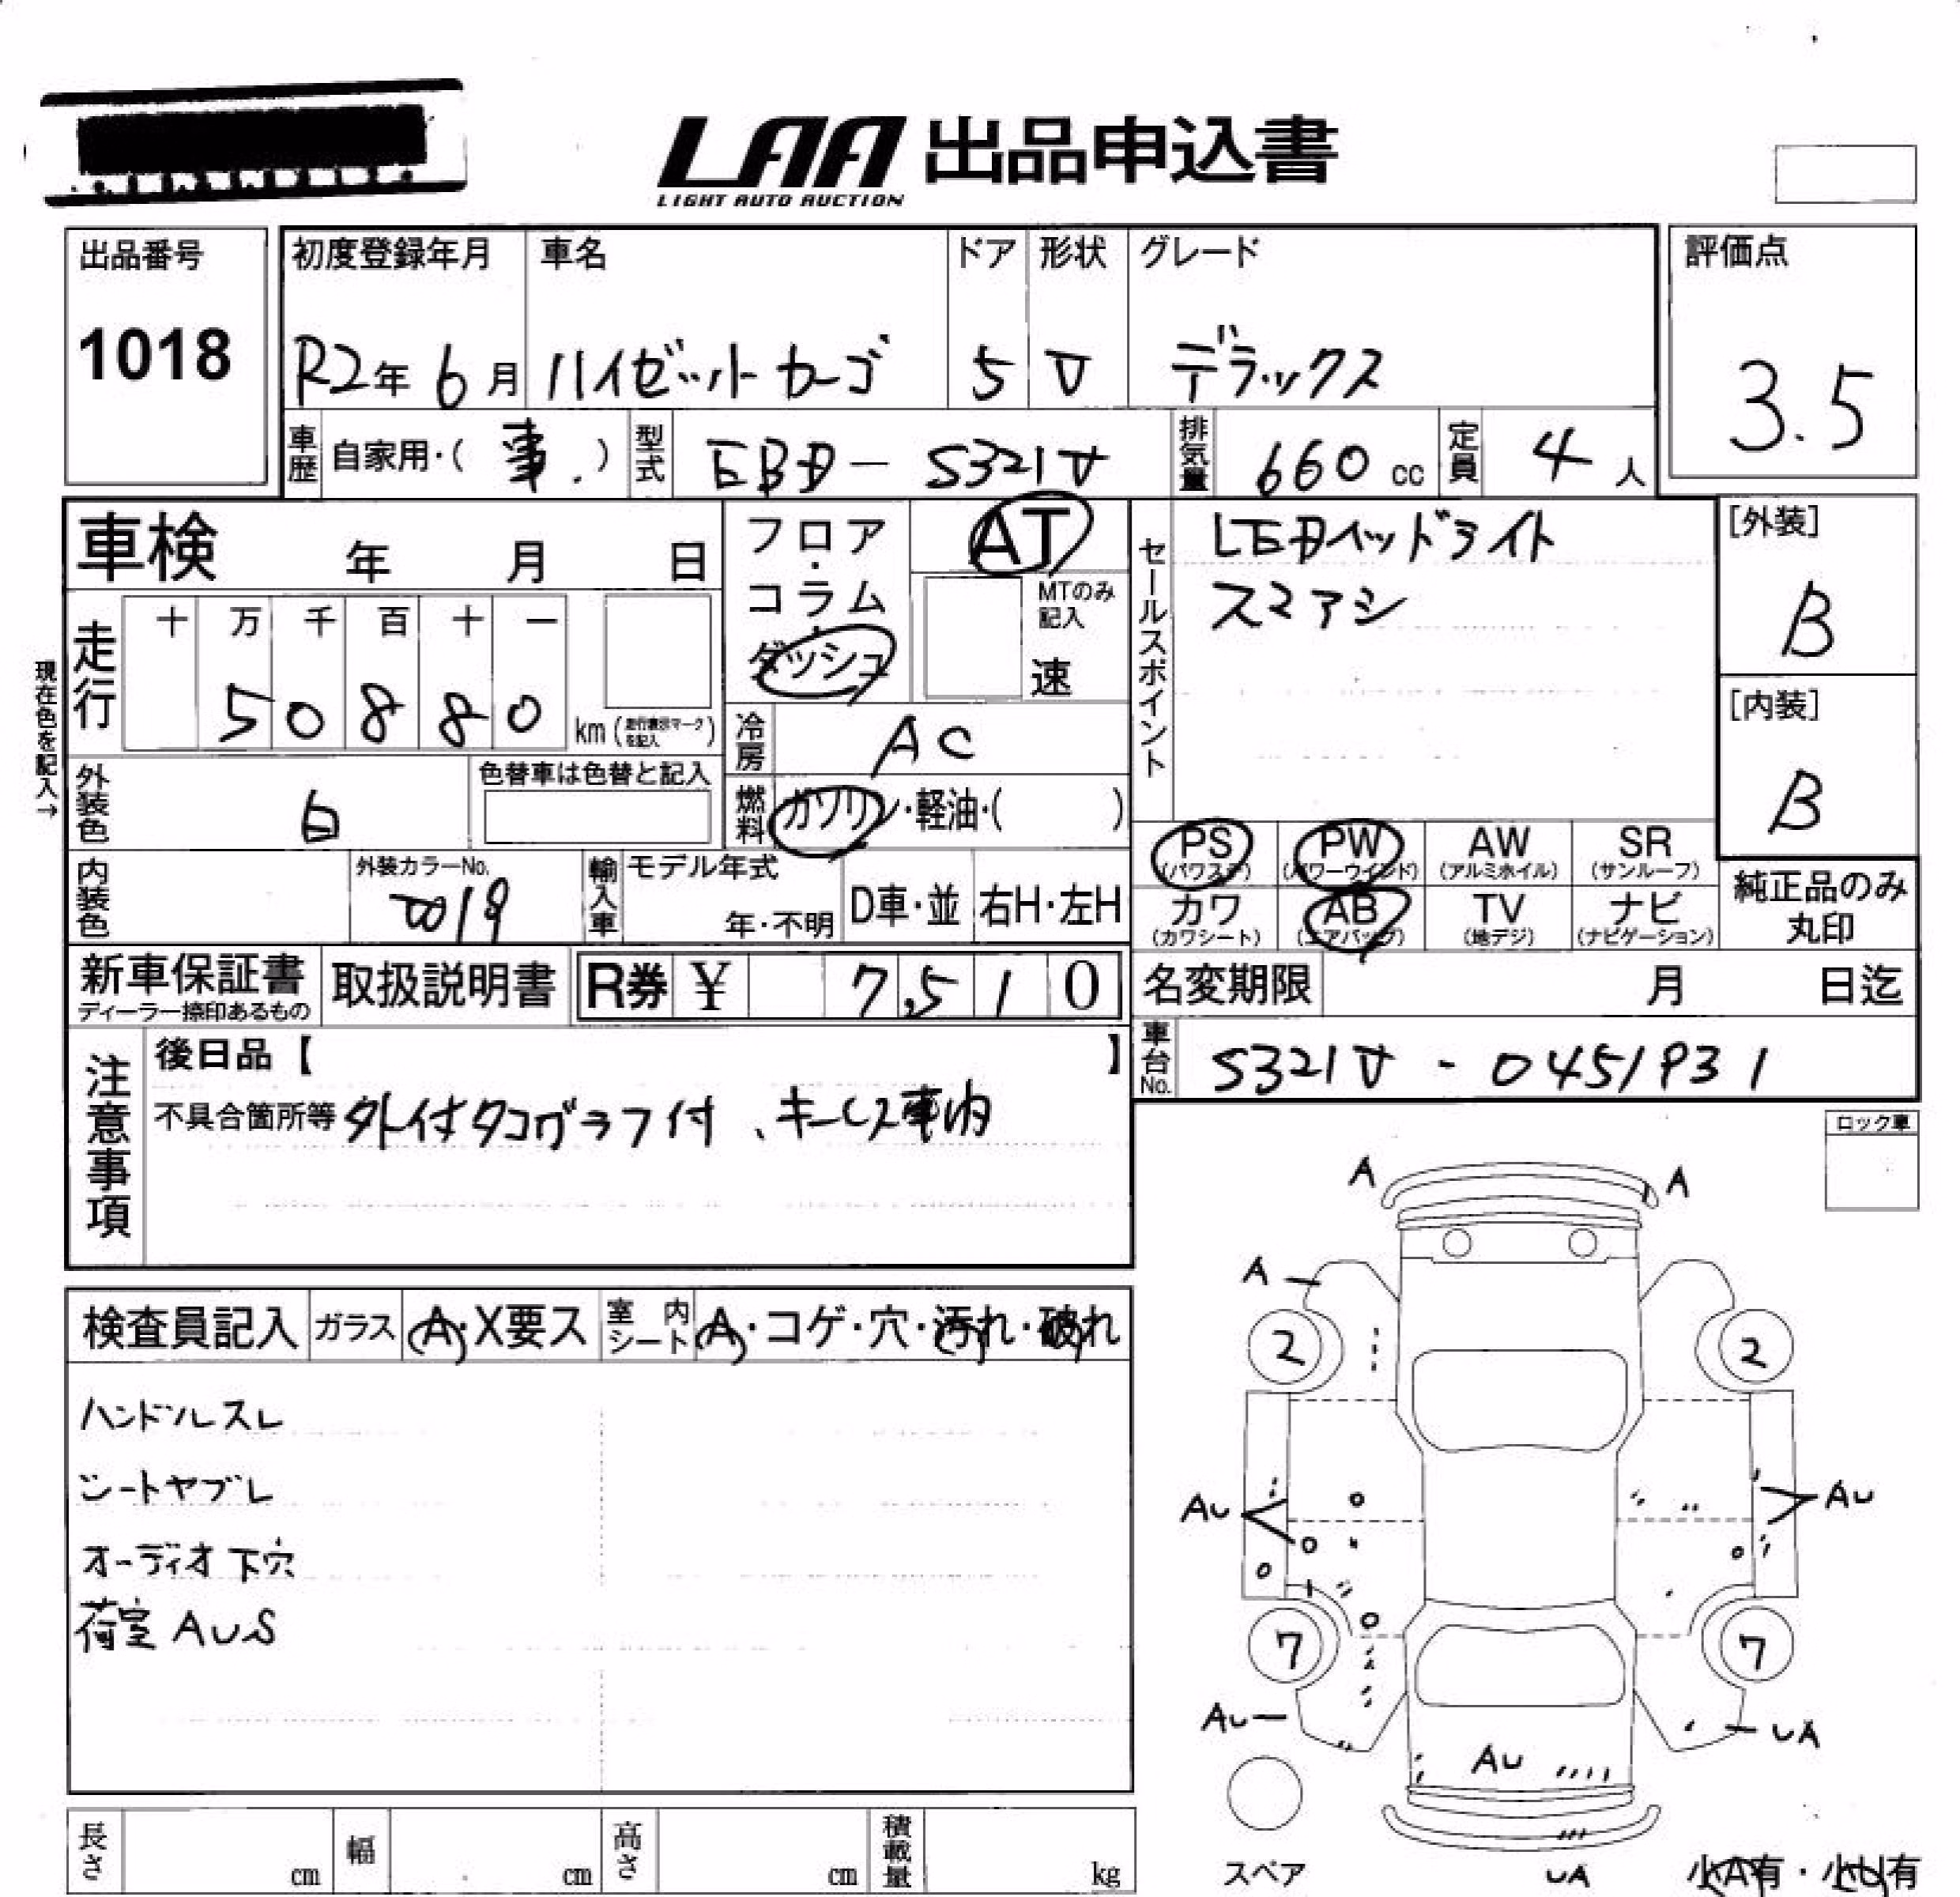 LAA 出品申込書
LIGHT AUTO AUCTION
出品番号
1018
初度登録年月
R2年 6月
車名
ハイゼットカーゴ
ドア
5
形状
V
グレード
デラックス
評価点
3.5
車歴 自家用・( 事. )
型式 EBD-S321V
排気量 660 cc
定員 4 人
車検 年 月 日
現在色を記入→
走行
十 万 千 百 十 一
5 0 8 8 0
km (走行表示マークを記入)
フロア・コラム・ダッシュ
AT
MTのみ記入
速
冷房 AC
燃料 ガソリン・軽油・( )
セールスポイント
LEDヘッドライト
スマアシ
[外装]
B
[内装]
B
外装色 白
色替車は色替と記入
内装色
外装カラーNo.
W19
輸入車
モデル年式
年・不明
D車・並
右H・左H
PS (パワステ)
PW (パワーウインド)
AW (アルミホイル)
SR (サンルーフ)
カワ (カワシート)
AB (エアバッグ)
TV (地デジ)
ナビ (ナビゲーション)
純正品のみ丸印
新車保証書
ディーラー捺印あるもの
取扱説明書
R券 ¥ 7,510
名変期限 月 日迄
車台No. S321V - 0451931
注意事項
後日品【 】
不具合箇所等 外付タコグラフ付、キーレス車内
ロック車
検査員記入
ガラス A・X要ス
室内シート A・コゲ・穴・汚れ・破れ
ハンドルスレ
シートヤブレ
オーディオ下穴
荷室 AUS
A A
A
2 2
AU AU
7 7
AU UA
AU
スペア
UA
小A有・小U有
長さ cm
幅 cm
高さ cm
積載量 kg